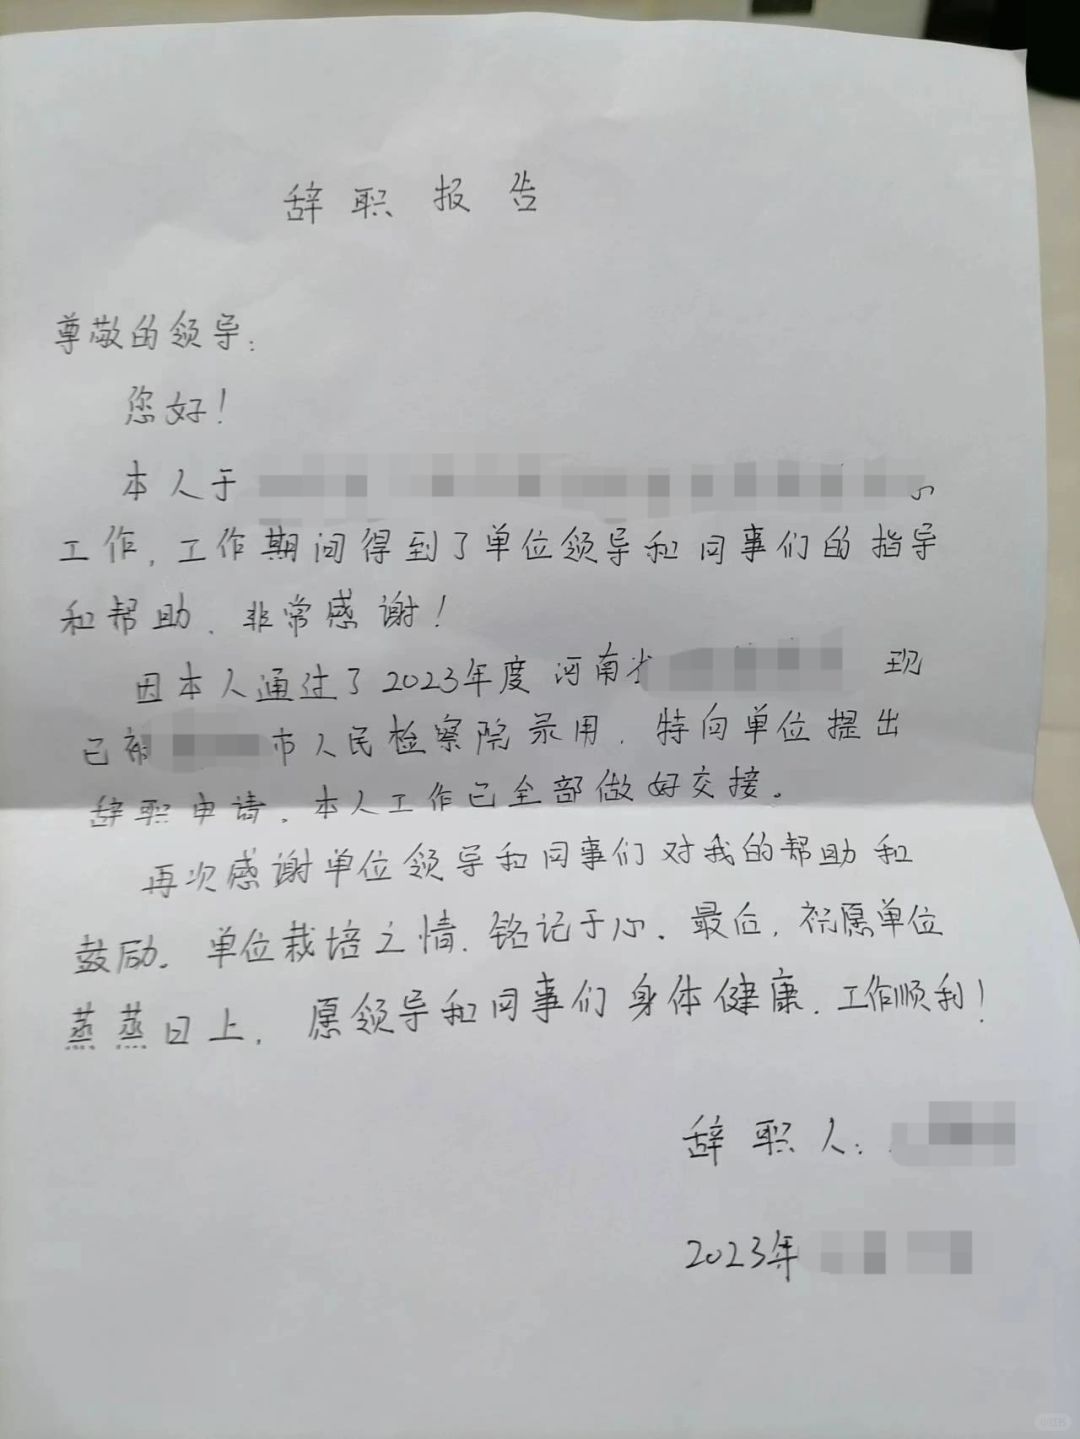 辞职报告
尊敬的领导：
您好！
本人于
工作，工作期间得到了单位领导和同事们的指导
和帮助，非常感谢！
因本人通过了2023年度河南省 现
已被 市人民检察院录用，特向单位提出
辞职申请，本人工作已全部做好交接。
再次感谢单位领导和同事们对我的帮助和
鼓励。单位栽培之情，铭记于心。最后，祝愿单位
蒸蒸日上，愿领导和同事们身体健康，工作顺利！
辞职人：
2023年